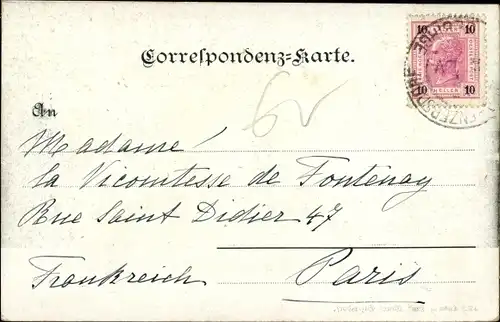 10 10
Correspondenz-Karte.
10 10
An
Madame
la Vicomtesse de Fontenay
Rue Saint Didier 47
Frankreich Paris